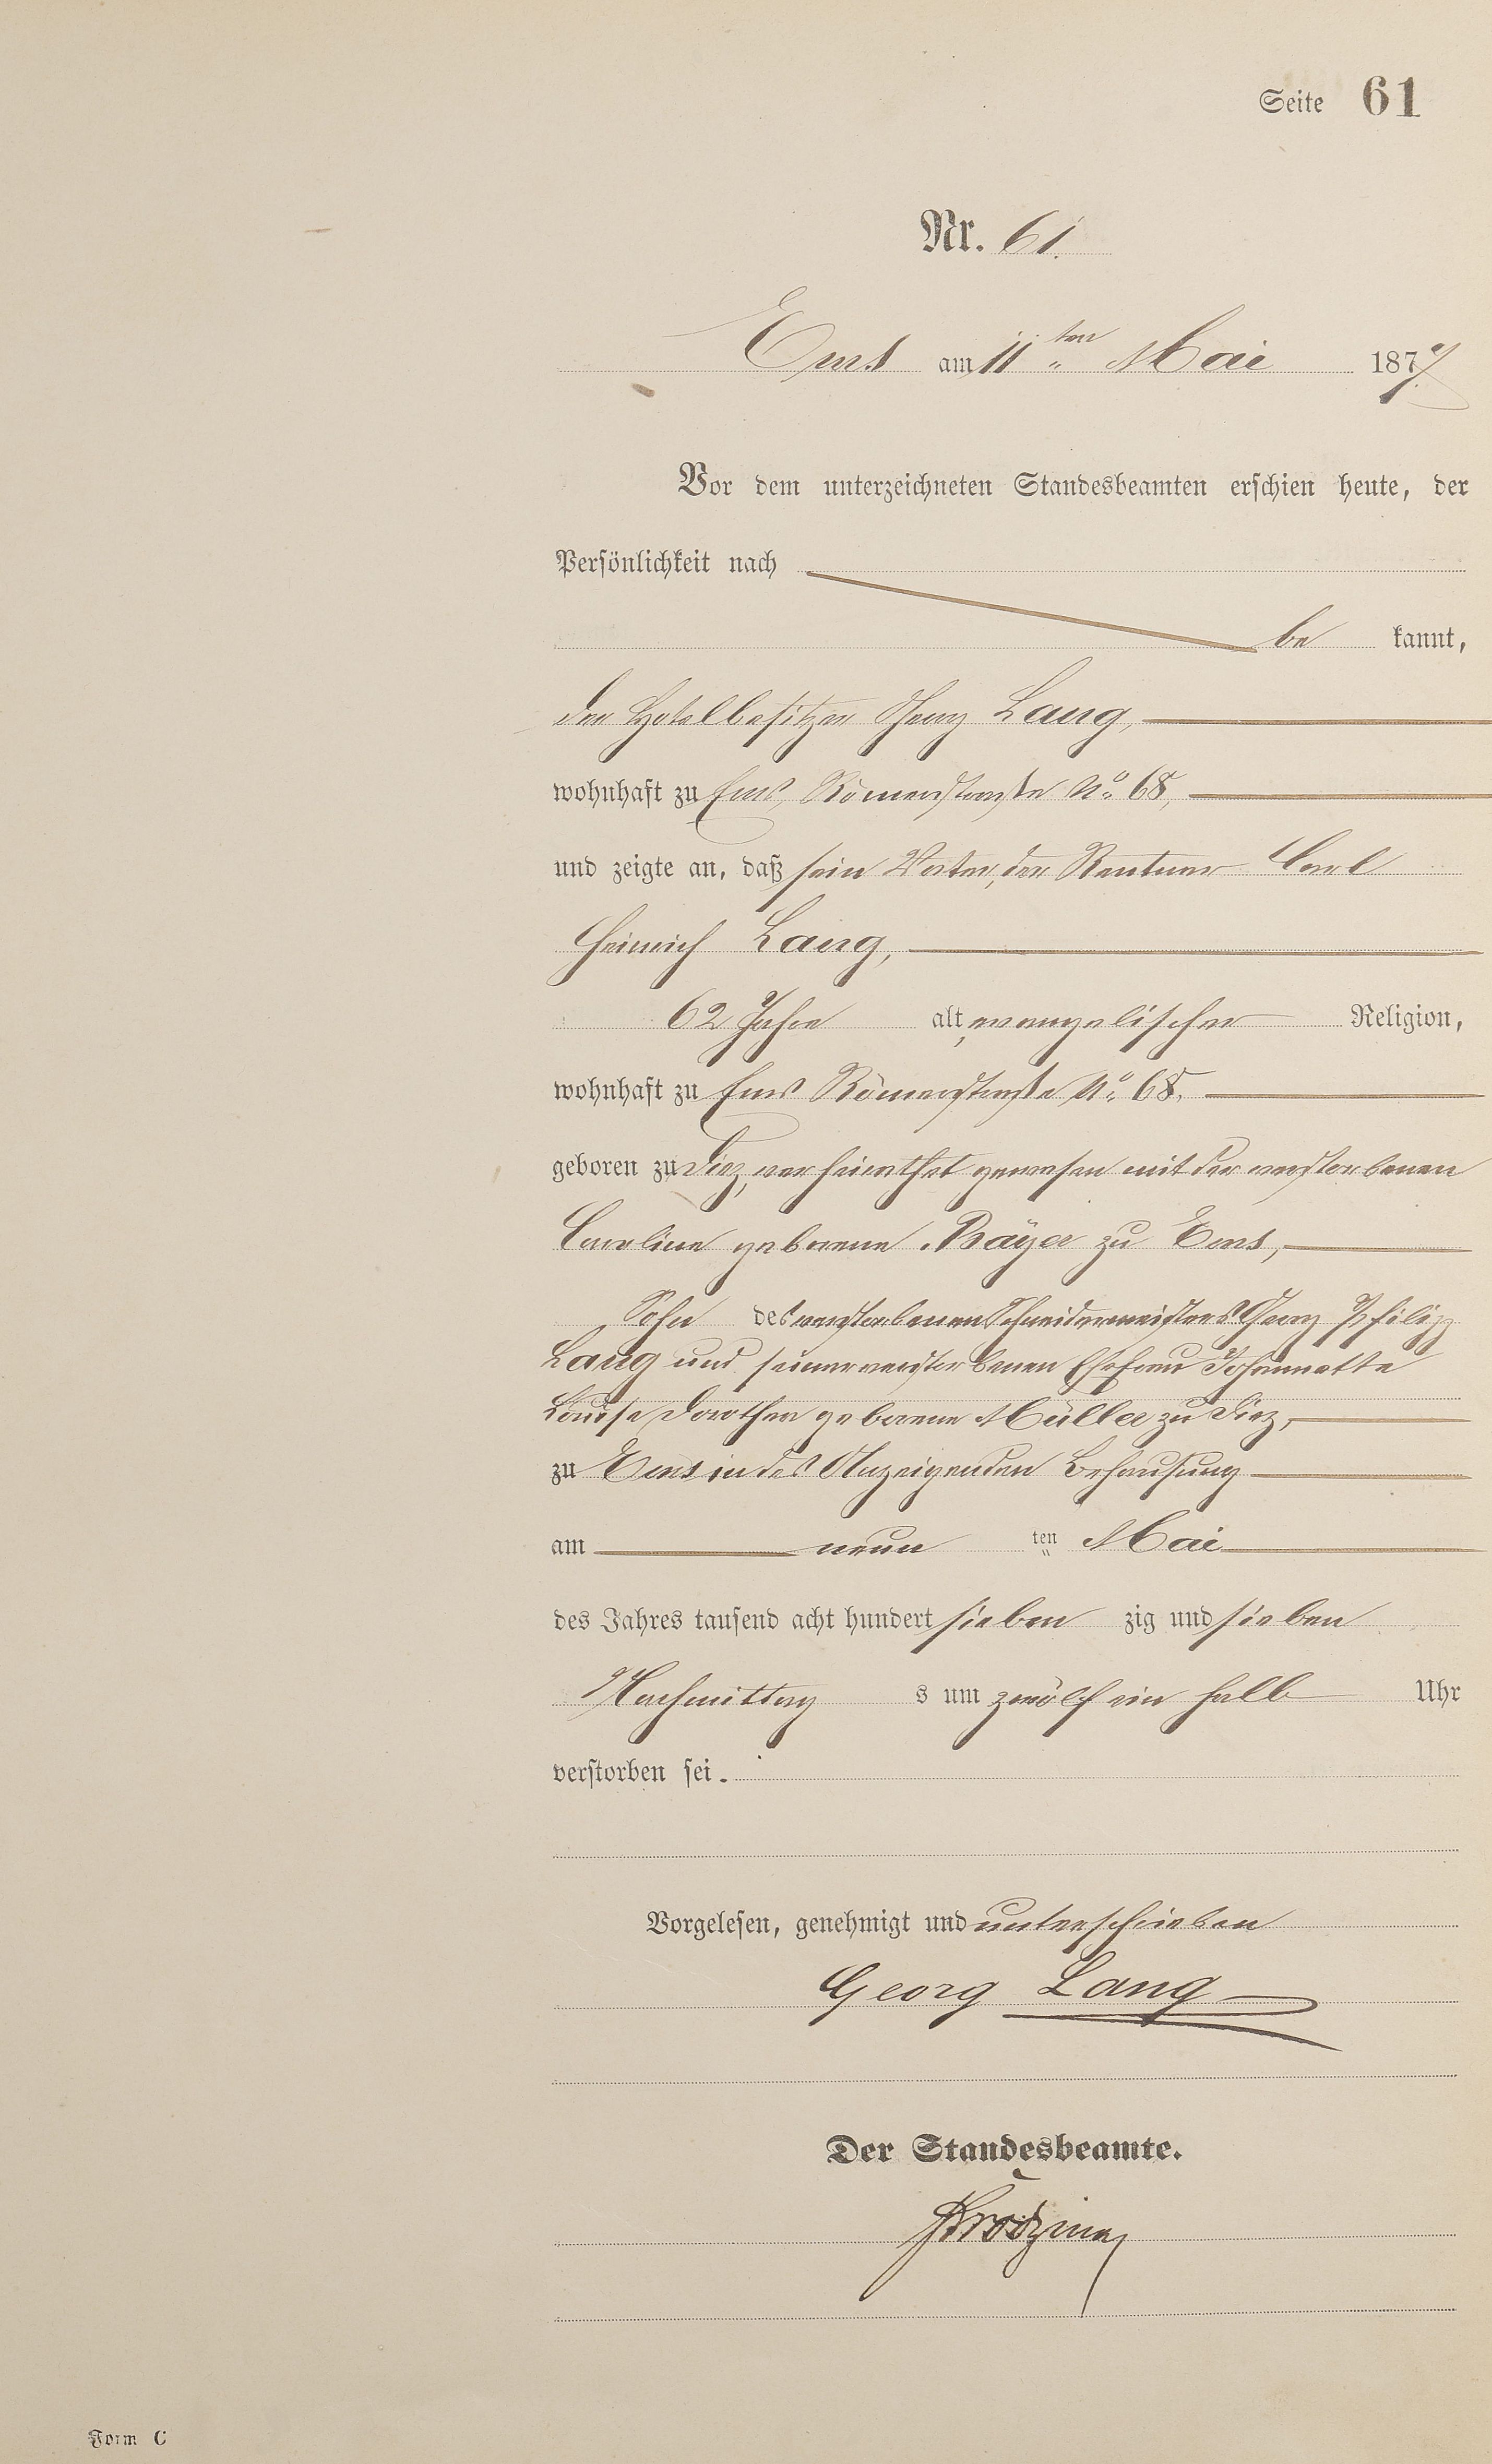 Seite 61
Nr. 61.
Ems am 11ten Mai 1877.
Vor dem unterzeichneten Standesbeamten erschien heute, der
Persönlichkeit nach
be kannt,
der Hotelbesitzer Georg Lang,
wohnhaft zu Ems, Römerstraße No. 68,
und zeigte an, daß sein Vater, der Rentner Carl
Heinrich Lang,
62 Jahre alt, evangelischer Religion,
wohnhaft zu Ems Römerstraße No. 68,
geboren zu Diez, verheirathet gewesen mit der verstorbenen
Caroline geborene zu Ems,
Sohn des verstorbenen Schneidermeisters Georg Philipp
Lang und seiner verstorbenen Ehefrau Johannette
Louise Dorothea geborene Müller zu Diez,
zu Ems in des Anzeigenden Behausung
am neun ten Mai
des Jahres tausend acht hundert sieben zig und sieben
Nachmittag s um zwölf ein halb Uhr
verstorben sei.
Vorgelesen, genehmigt und unterschrieben
Georg Lang
Der Standesbeamte.
Form C